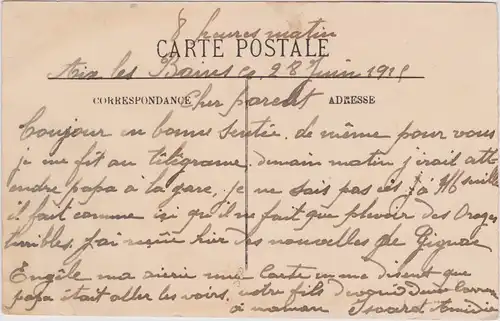 8 heures matin
CARTE POSTALE
Aix les Bains le 28 Juin 191
CORRESPONDANCE Cher parent ADRESSE
Toujour en bonne sentée. de même pour vous
je me fit au télégrame, demain matin j'irait att
endre papa à la gare, je ne sais pas ci à Marseille
il fait comme ici qu'il ne fait que pleuvoir des Orages
terribles. J'ai reçue hier des nouvelles de Gignac
Engèle ma une Carte en me disent que
papa était aller les voirs. votre fils
à maman Isoard Amédée